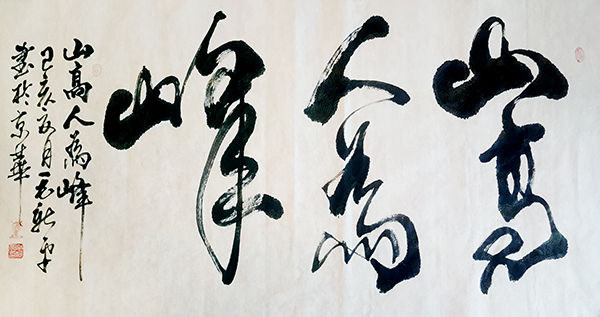 山高
人為
峰
山高人為峰
己亥五月
書於京華